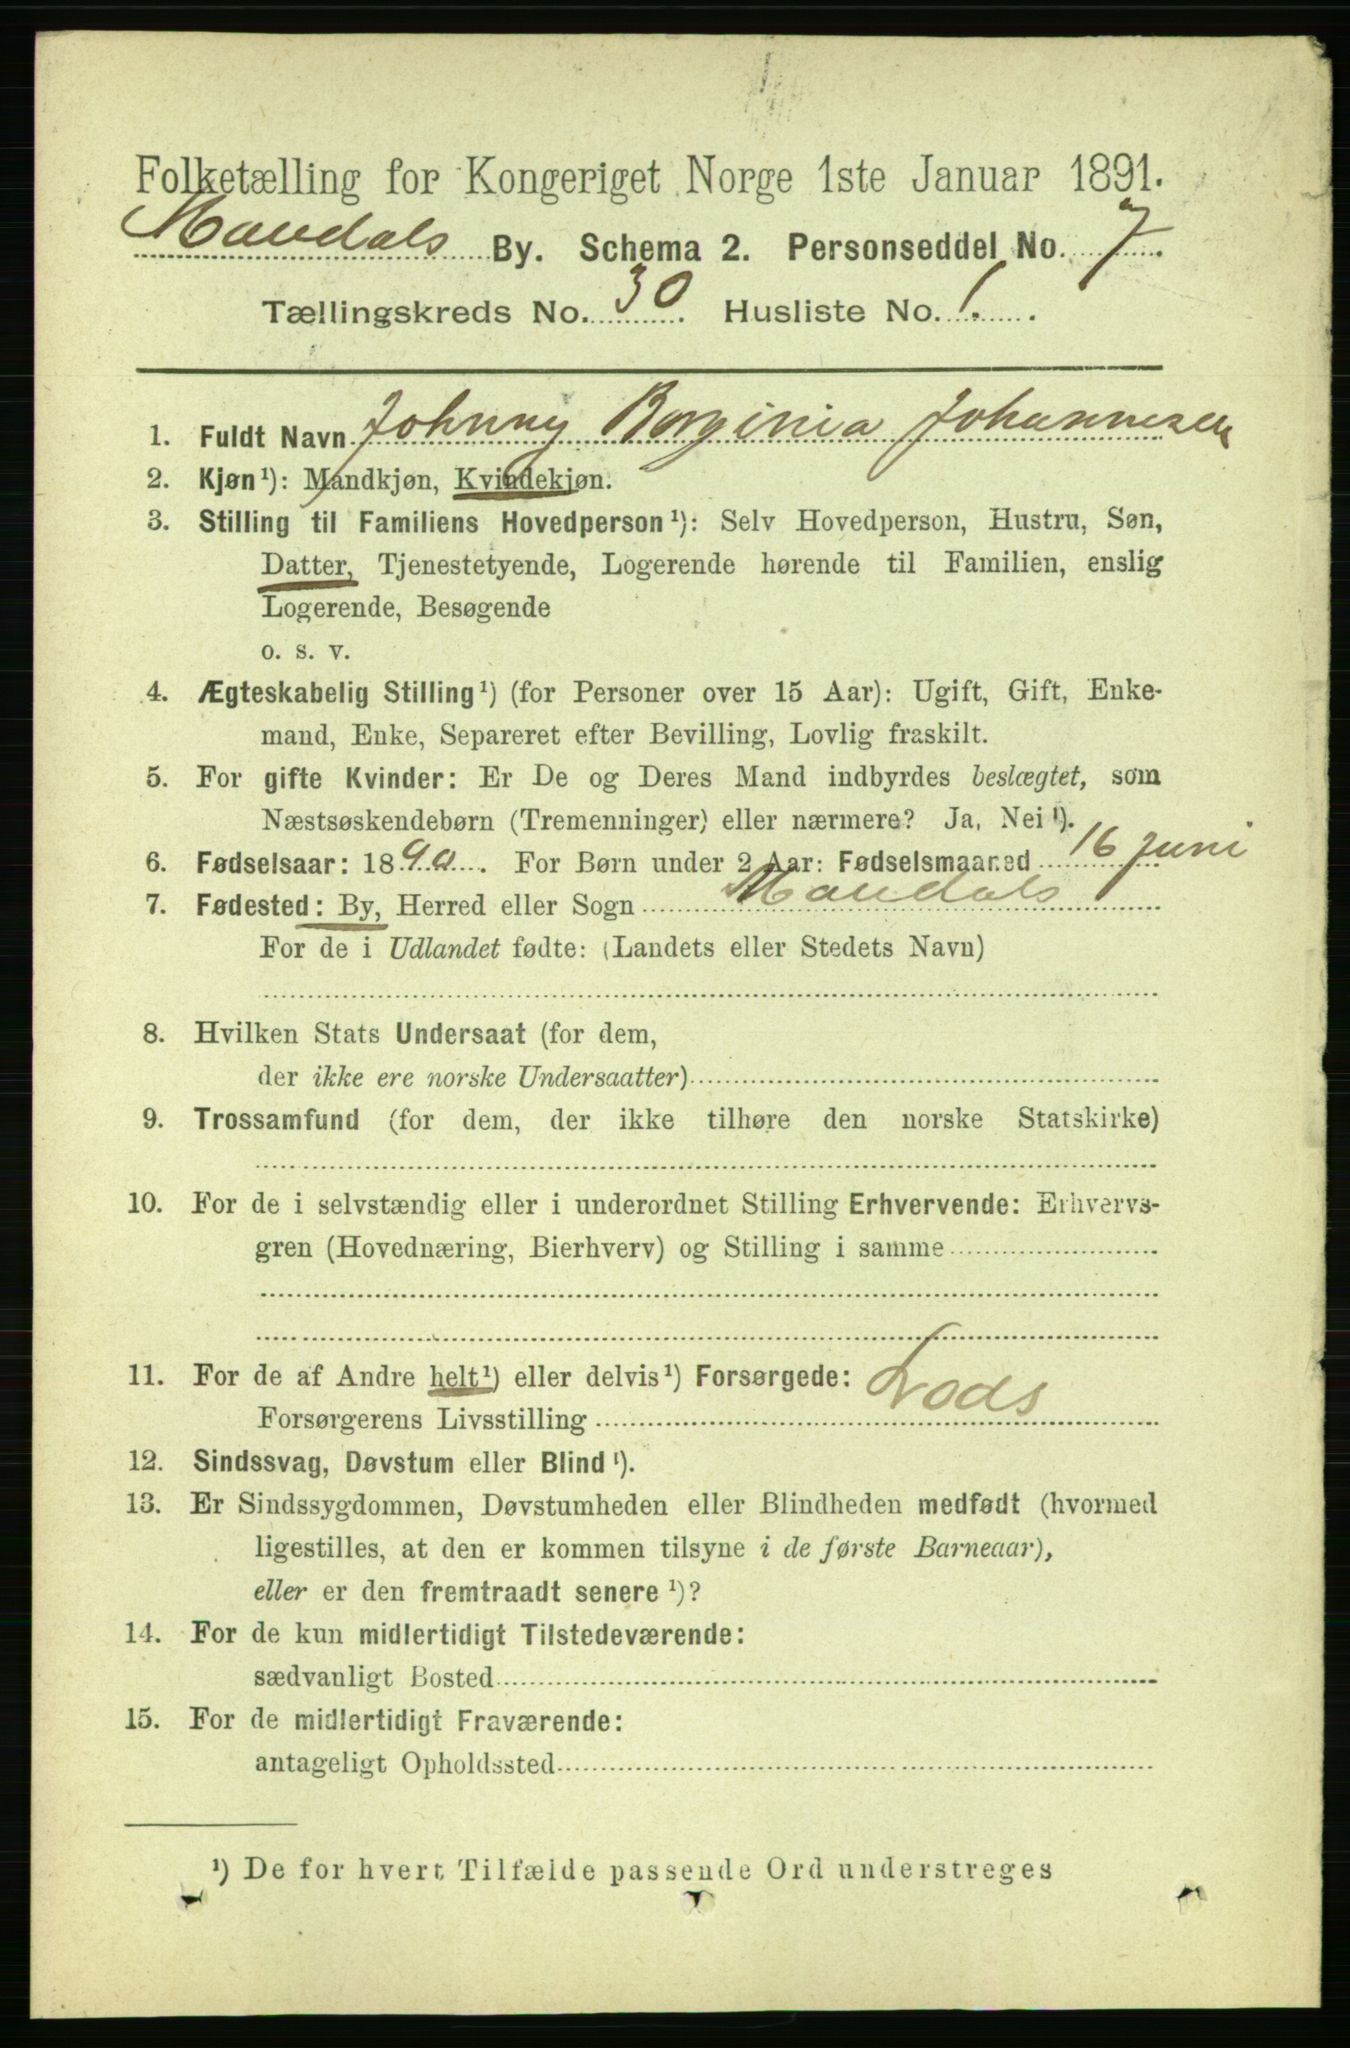 Folketælling for Kongeriget Norge 1ste Januar 1891.
Mandals By. Schema 2. Personseddel No. 7.
Tællingskreds No. 30. Husliste No. 1.
1. Fuldt Navn Johnny Borginia Johannesen
2. Kjøn¹): Mandkjøn, Kvindekjøn.
3. Stilling til Familiens Hovedperson¹): Selv Hovedperson, Hustru, Søn,
Datter, Tjenestetyende, Logerende hørende til Familien, enslig
Logerende, Besøgende
o. s. v.
4. Ægteskabelig Stilling¹) (for Personer over 15 Aar): Ugift, Gift, Enke-
mand, Enke, Separeret efter Bevilling, Lovlig fraskilt.
5. For gifte Kvinder: Er De og Deres Mand indbyrdes beslægtet, som
Næstsøskendebørn (Tremenninger) eller nærmere? Ja, Nei¹).
6. Fødselsaar: 1890. For Børn under 2 Aar: Fødselsmaaned 16 Juni
7. Fødested: By, Herred eller Sogn Mandals
For de i Udlandet fødte: (Landets eller Stedets Navn)
8. Hvilken Stats Undersaat (for dem,
der ikke ere norske Undersaatter)
9. Trossamfund (for dem, der ikke tilhøre den norske Statskirke)
10. For de i selvstændig eller i underordnet Stilling Erhvervende: Erhvervs-
gren (Hovednæring, Bierhverv) og Stilling i samme
11. For de af Andre helt¹) eller delvis¹) Forsørgede:
Forsørgerens Livsstilling Lods
12. Sindssvag, Døvstum eller Blind¹).
13. Er Sindssygdommen, Døvstumheden eller Blindheden medfødt (hvormed
ligestilles, at den er kommen tilsyne i de første Barneaar),
eller er den fremtraadt senere¹)?
14. For de kun midlertidigt Tilstedeværende:
sædvanligt Bosted
15. For de midlertidigt Fraværende:
antageligt Opholdssted
¹) De for hvert Tilfælde passende Ord understreges